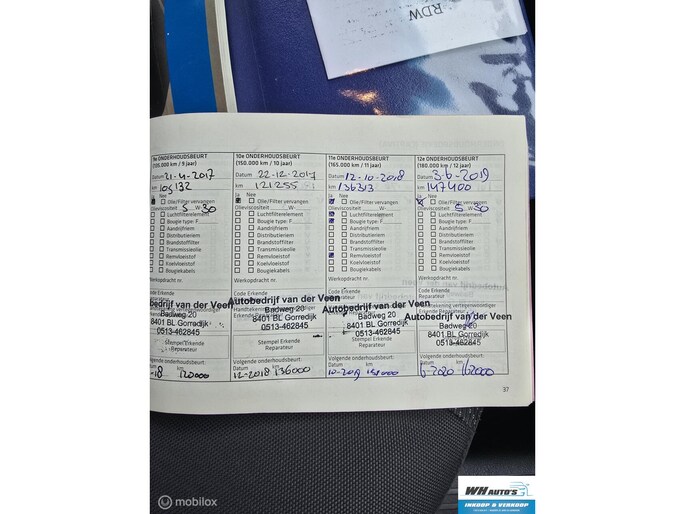 RDW
9e ONDERHOUDSBEURT
(135.000 km / 9 jaar)
Datum 21-4-2017
km 105132
Nee
Olie/Filter vervangen
Olieviscositeit 5 W- 30
Luchtfilterelement
Bougie type: F
Aandrijfriem
Distributieriem
Brandstoffilter
Transmissieolie
Remvloeistof
Koelvloeistof
Bougiekabels
Werkopdracht nr.
Code Erkende
Reparateur
Autobedrijf van der Veen
Badweg 20
8401 BL Gorredijk
0513-462845
Stempel Erkende
Reparateur
Volgende onderhoudsbeurt:
Datum km
-18 120000
10e ONDERHOUDSBEURT
(150.000 km / 10 jaar)
Datum 22-12-2017
km 121255
Ja Nee
Olie/Filter vervangen
Olieviscositeit W-
Luchtfilterelement
Bougie type: F
Aandrijfriem
Distributieriem
Brandstoffilter
Transmissieolie
Remvloeistof
Koelvloeistof
Bougiekabels
Werkopdracht nr.
Code Erkende
Reparateur
Autobedrijf van der Veen
Badweg 20
8401 BL Gorredijk
0513-462845
Stempel Erkende
Reparateur
Volgende onderhoudsbeurt:
Datum km
12-2018 136000
11e ONDERHOUDSBEURT
(165.000 km / 11 jaar)
Datum 12-10-2018
km 136313
Ja Nee
Olie/Filter vervangen
Olieviscositeit W-
Luchtfilterelement
Bougie type: F
Aandrijfriem
Distributieriem
Brandstoffilter
Transmissieolie
Remvloeistof
Koelvloeistof
Bougiekabels
Werkopdracht nr.
Code Erkende
Reparateur
Autobedrijf van der Veen
Badweg 20
8401 BL Gorredijk
0513-462845
Stempel Erkende
Reparateur
Volgende onderhoudsbeurt:
Datum km
10-2019 151000
12e ONDERHOUDSBEURT
(180.000 km / 12 jaar)
Datum 3-6-2019
km 147400
Ja Nee
Olie/Filter vervangen
Olieviscositeit 5 W- 30
Luchtfilterelement
Bougie type: F
Aandrijfriem
Distributieriem
Brandstoffilter
Transmissieolie
Remvloeistof
Koelvloeistof
Bougiekabels
Werkopdracht nr.
Code Erkende
Reparateur
Autobedrijf van der Veen
Badweg 20
8401 BL Gorredijk
0513-462845
Stempel Erkende
Reparateur
Volgende onderhoudsbeurt:
Datum km
6-2020 162000
37
mobilox
WH AUTO'S
INKOOP & VERKOOP